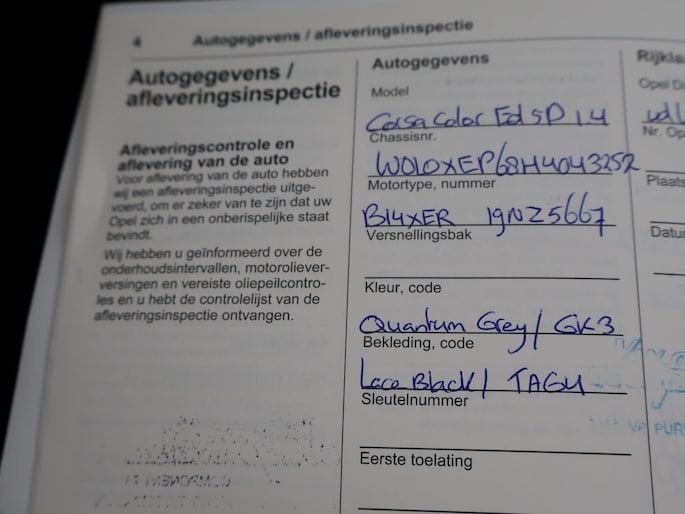 4 Autogegevens / afleveringsinspectie
Autogegevens /
afleveringsinspectie
Afleveringscontrole en
aflevering van de auto
Voor aflevering van de auto hebben
wij een afleveringsinspectie uitge-
voerd, om er zeker van te zijn dat uw
Opel zich in een onberispelijke staat
bevindt.
Wij hebben u geïnformeerd over de
onderhoudsintervallen, motoroliever-
versingen en vereiste oliepeilcontro-
les en u hebt de controlelijst van de
afleveringsinspectie ontvangen.
Autogegevens
Model
Corsa Color Ed 5D 1.4
Chassisnr.
W0L0XEP68H4043252
Motortype, nummer
B14XER 19NZ5667
Versnellingsbak
Kleur, code
Quantum Grey / GK3
Bekleding, code
Lace Black / TAGU
Sleutelnummer
Eerste toelating
Opel
Nr.